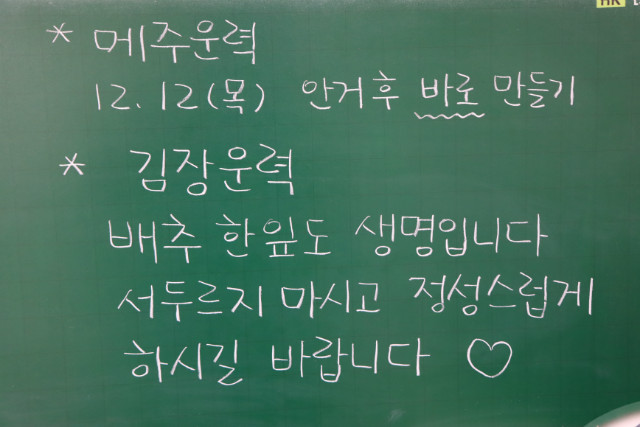 * 메주운력
12. 12(목) 안거후 바로 만들기
* 김장운력
배추 한잎도 생명입니다
서두르지 마시고 정성스럽게
하시길 바랍니다 ♡
HK